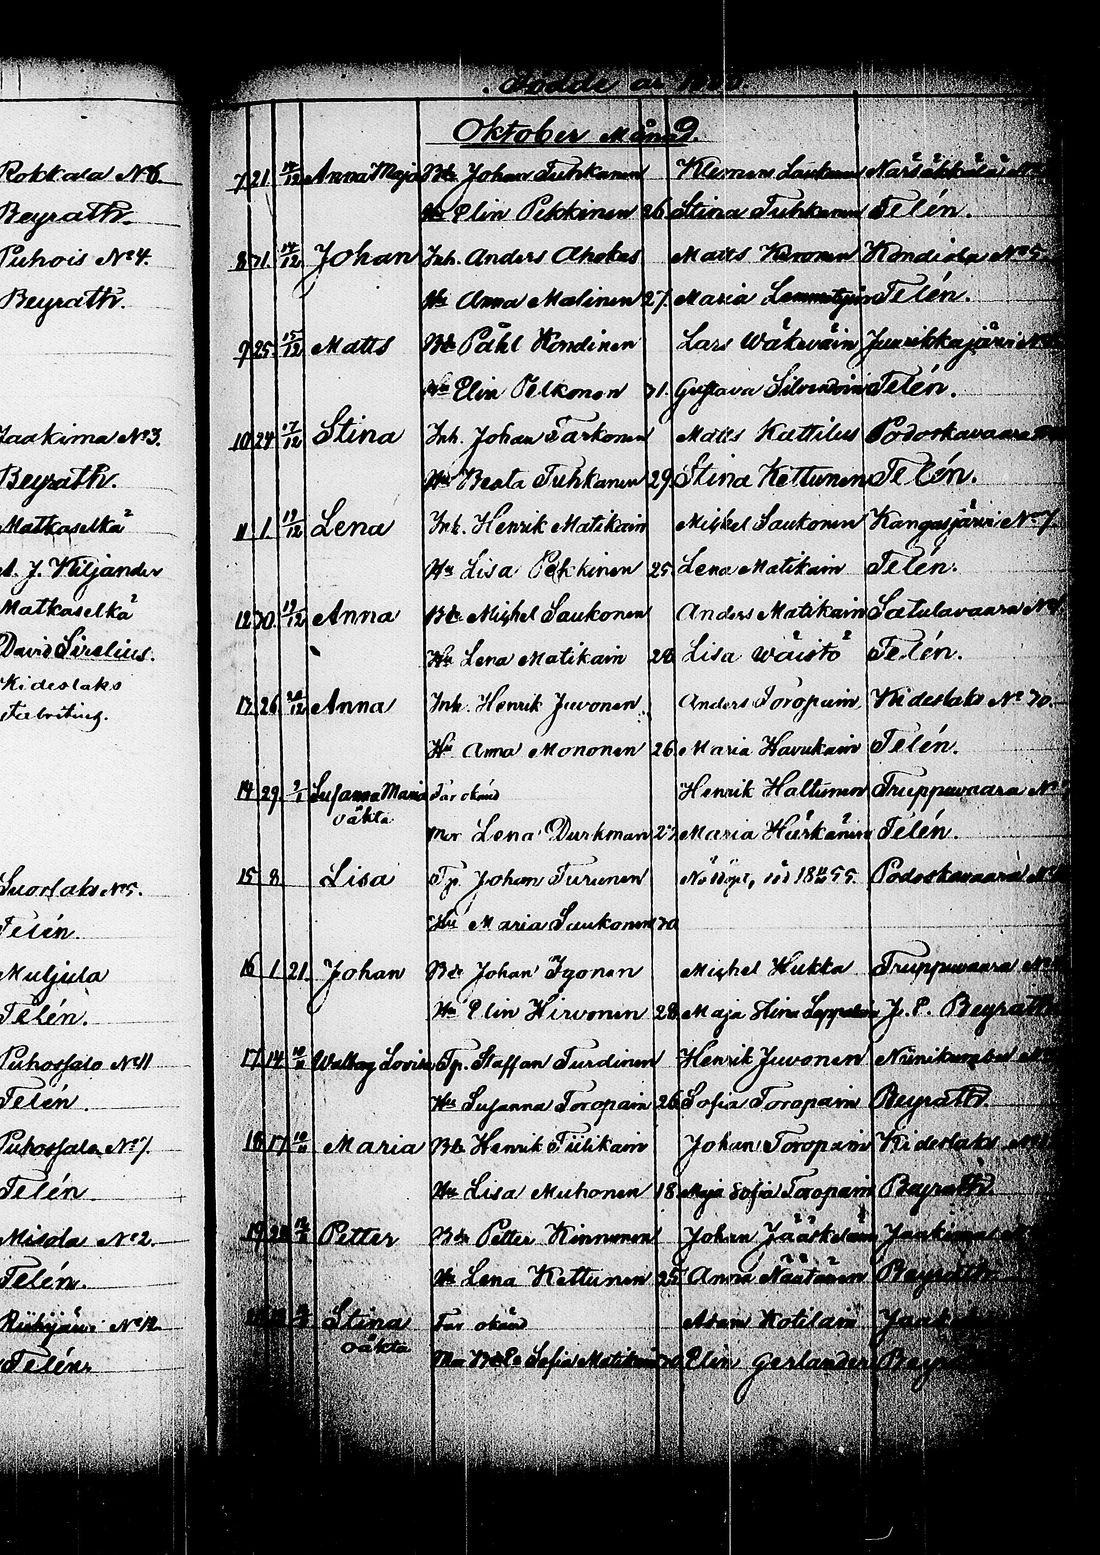 Rokkala No 6.
Beyrath.
Puhois No 4.
Beyrath.
Jaakima No 3.
Beyrath.
Matkaselkä
A. J. Kiljander
Matkaselkä
David Sirelius.
Kideslaks
Suorlaks No 5.
Telén.
Muljula
Telén.
Puhossalo No 11
Telén.
Puhossalo No 7.
Telén
Misola No 2.
Telén.
No 12.
Telén.
Födde år
Oktober Månad.
7 21 14/12 Anna Maja Bde Johan Tuhkanen Klemens Närsäkkälä
Hu Elin Pekkinen 26 Stina Tuhkanen Telén.
8 31. 14/12 Johan Inh. Anders Ahokas Matts Karonen Kondiola No 5.
Hu Anna Malinen 27. Maria Telén.
9 25. 15/12 Matts Bde Påhl Kondinen Lars Wäkeväin Juurikkajärvi
Hu Elin Pelkonen 31. Gustava Silvendoin Telén.
10 24 17/12 Stina Inh. Johan Tarkonen Matts Kattilus Podoskavaara
Hu Beata Tuhkanen 29. Stina Kettunen Telén.
11 1 19/12 Lena Inh. Henrik Matikain Mishel Saukonen Kangasjärvi No 7.
Hu Lisa Pekkinen 25 Lena Matikain Telén.
12 30. 19/12 Anna Bde Mishel Saukonen Anders Matikain Satulavaara
Hu Lena Matikain 28 Lisa Wäistö Telén.
13. 26 Anna Inh. Henrik Juvonen Anders Toropain Kideslaks No 30.
Hu Anna Mononen 26. Maria Havukain Telén.
14 29. Susanna Maria Far okänd Henrik Haltunen Truppuvaara
oäkta
Mor Lena Durkman 27. Maria Härkänin Telén.
15 8 Lisa Tp. Johan Turunen Nödöpt, Podoskavaara
Hu Maria Saukonen 30
16 1 21. Johan Bde Johan Igonen Mishel Hukka Truppuvaara
Hu Elin Hirvonen 28. Maja Stina J. P. Beyrath.
17 14 Walborg Lovisa Tp. Staffan Turdinen Henrik Juvonen
Hu Susanna Toropain 26 Sofia Toropain Beyrath.
18 17 Maria Bde Henrik Tiilikain Johan Toropain Kideslaks
Hu Lisa Muhonen 18 Maja Sofia Toropain Beyrath.
19 Petter Bde Petter Kinnunen Johan Jääskeläin Jaakima
Hu Lena Kettunen 25. Anna Näätänen Beyrath.
Stina Far okänd Adam Kotilain
oäkta
Sofia Matikain Elin Gerlander